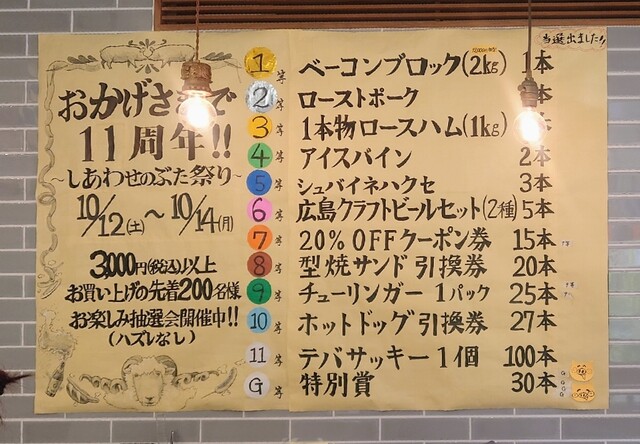 おかげさまで
11周年!!
～しあわせのぶた祭り～
10/12(土)～10/14(月)
3,000円(税込)以上
お買い上げの先着200名様
お楽しみ抽選会開催中!!
(ハズレなし)
当選出ました!!
1等 ベーコンブロック(2kg) 1本
2等 ローストポーク 本
3等 1本物ロースハム(1kg) 本
4等 アイスバイン 2本
5等 シュバイネハクセ 3本
6等 広島クラフトビールセット(2種) 5本
7等 20%OFFクーポン券 15本
8等 型焼サンド引換券 20本
9等 チューリンガー1パック 25本
10等 ホットドッグ引換券 27本
11等 テバサッキー1個 100本
G等 特別賞 30本